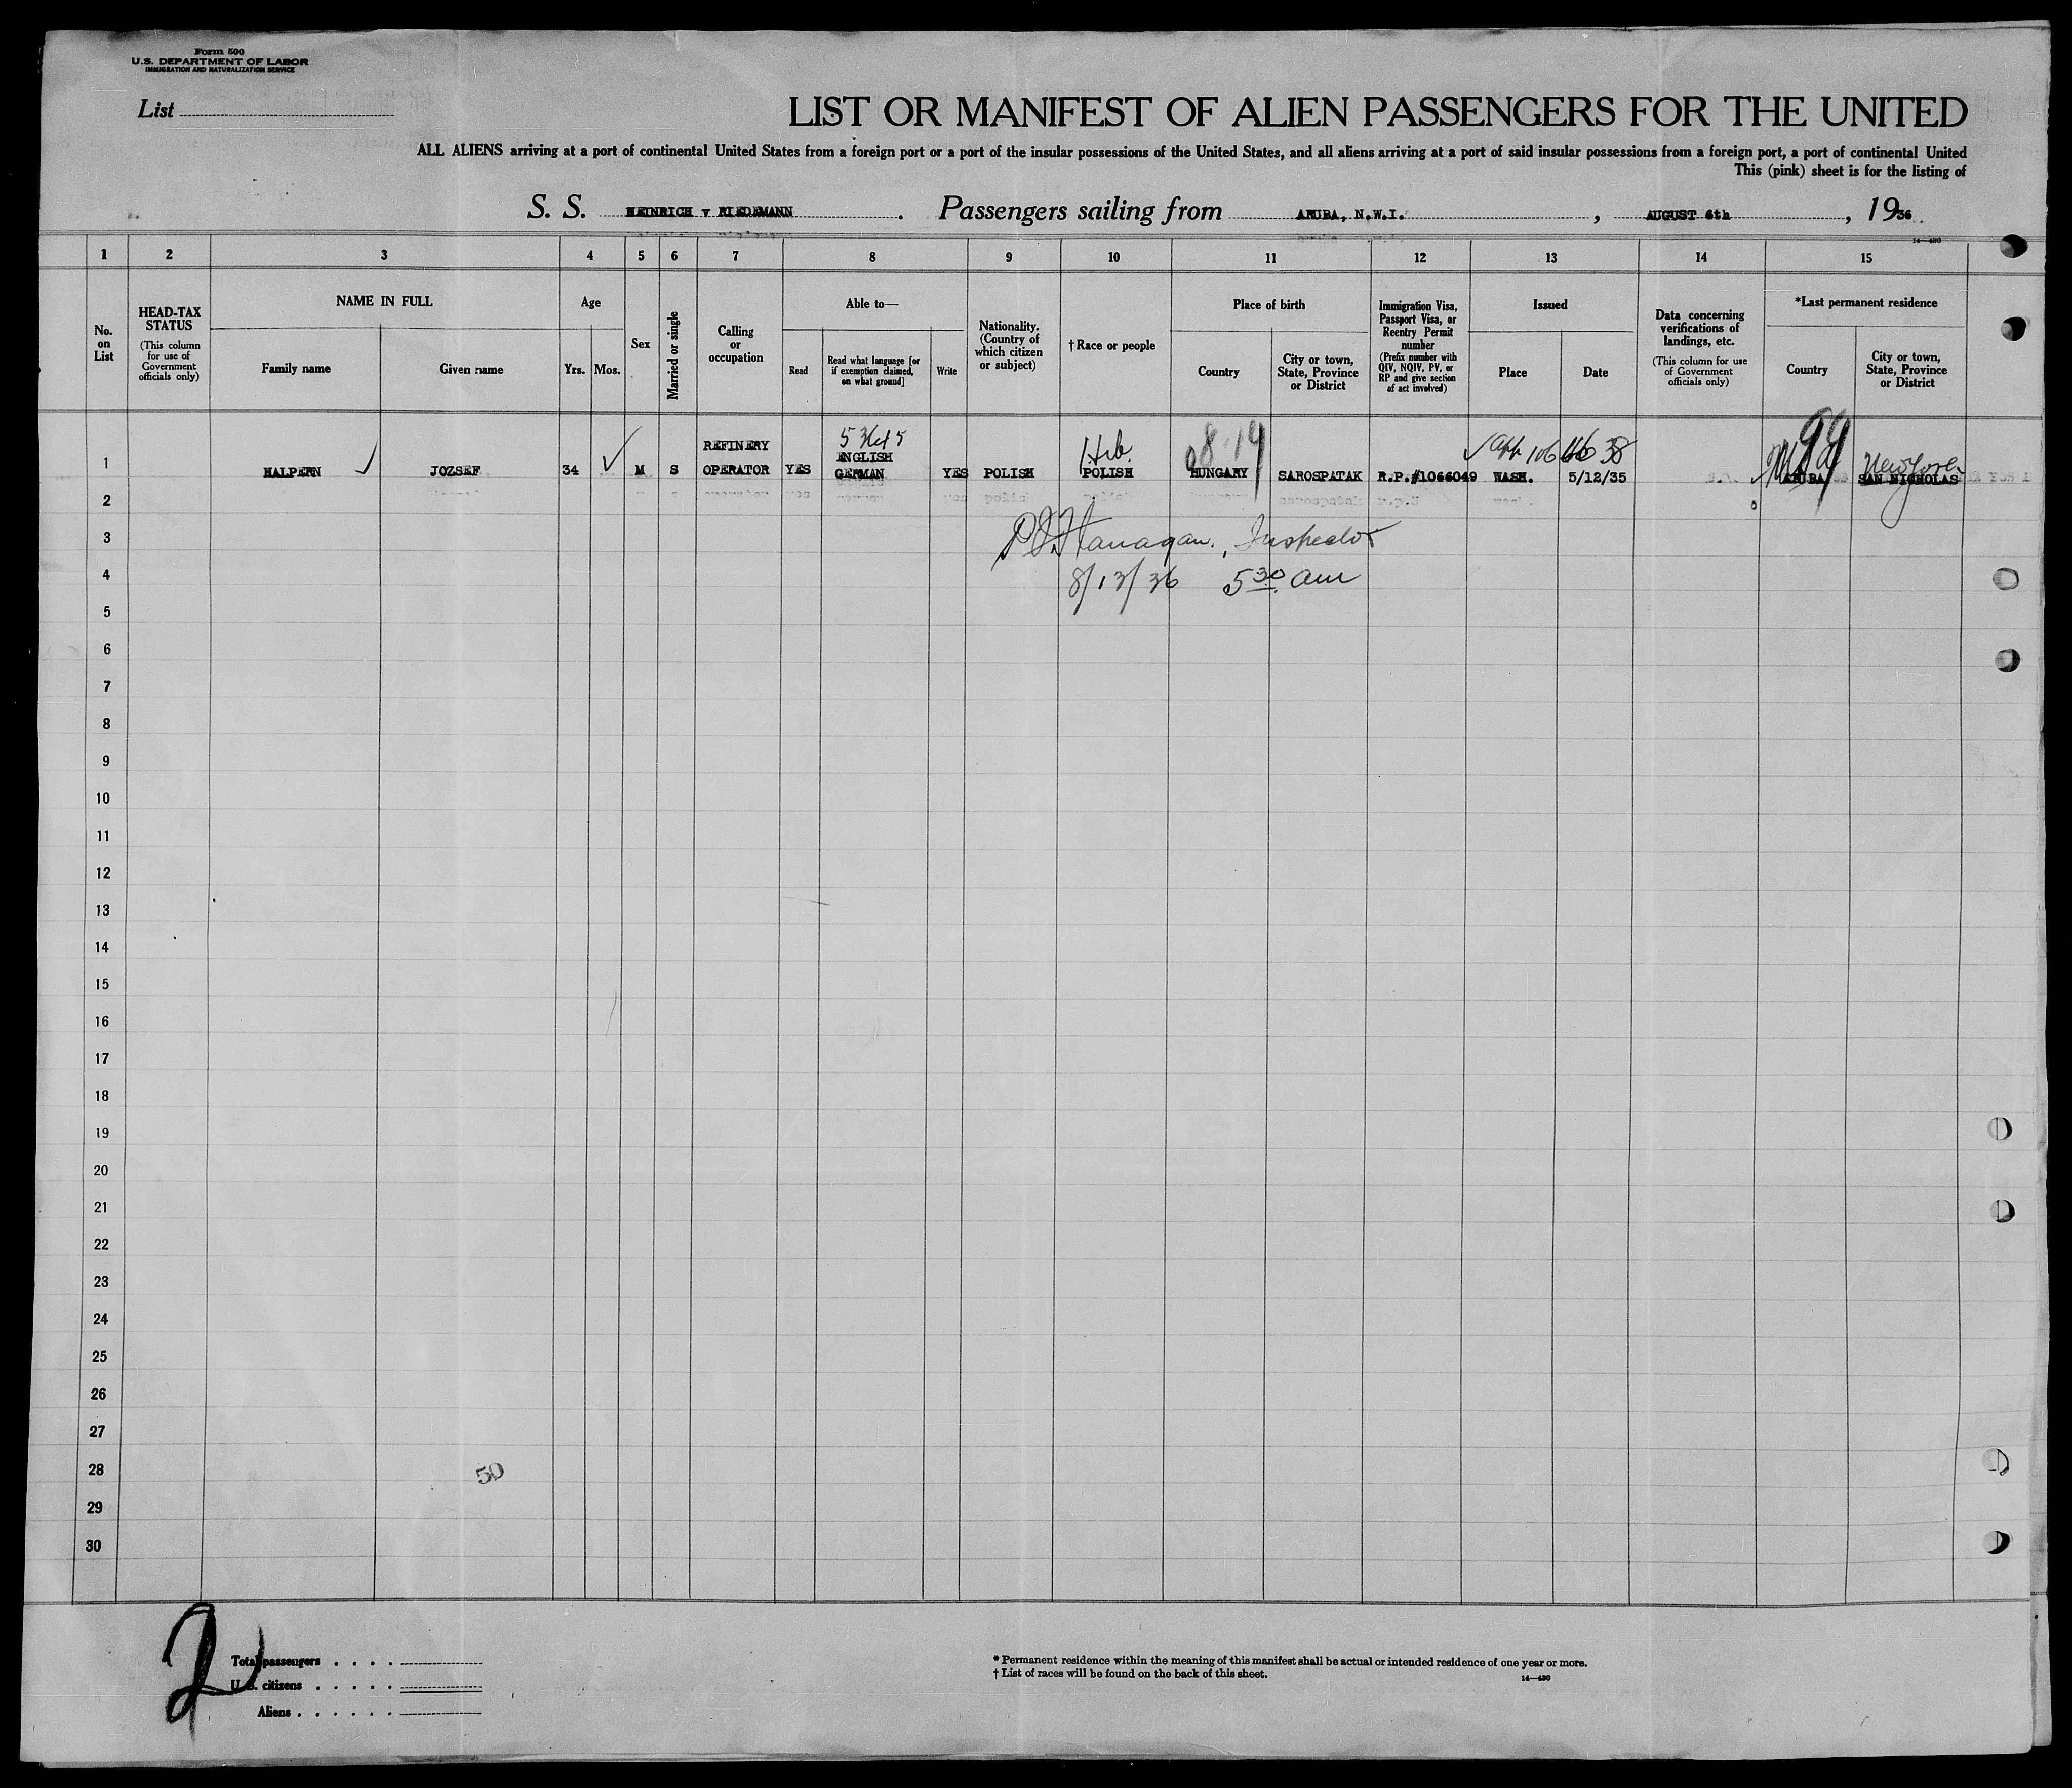 Form 500
U.S. DEPARTMENT OF LABOR
IMMIGRATION AND NATURALIZATION SERVICE
List
LIST OR MANIFEST OF ALIEN PASSENGERS FOR THE UNITED
ALL ALIENS arriving at a port of continental United States from a foreign port or a port of the insular possessions of the United States, and all aliens arriving at a port of said insular possessions from a foreign port, a port of continental United
This (pink) sheet is for the listing of
S. S. HEINRICH v RIEDEMANN. Passengers sailing from ARUBA, N.W.I., AUGUST 6th, 1936
14—430
1 2 3 4 5 6 7 8 9 10 11 12 13 14 15
No. on List
HEAD-TAX STATUS
(This column for use of Government officials only)
NAME IN FULL
Family name
Given name
Age
Yrs. Mos.
Sex
Married or single
Calling or occupation
Able to—
Read
Read what language [or if exemption claimed, on what ground]
Write
Nationality. (Country of which citizen or subject)
†Race or people
Place of birth
Country
City or town, State, Province or District
Immigration Visa, Passport Visa, or Reentry Permit number
(Prefix number with QIV, NQIV, PV, or RP and give section of act involved)
Issued
Place
Date
Data concerning verifications of landings, etc.
(This column for use of Government officials only)
*Last permanent residence
Country
City or town, State, Province or District
99
Heb. 08-19
New York
REFINERY ENGLISH
1 HALPERN JOZSEF 34 M S OPERATOR YES GERMAN YES POLISH POLISH HUNGARY SAROSPATAK R.P.#1066049 WASH. 5/12/35 ARUBA SAN NICHOLAS
2
3 Flanagan., Inspector
4 8/13/36 5 30 am
5
6
7
8
9
10
11
12
13
14
15
16
17
18
19
20
21
22
23
24
25
26
27
28 50
29
30
2
Total passengers
U.S. citizens
Aliens
* Permanent residence within the meaning of this manifest shall be actual or intended residence of one year or more.
† List of races will be found on the back of this sheet.
14—430